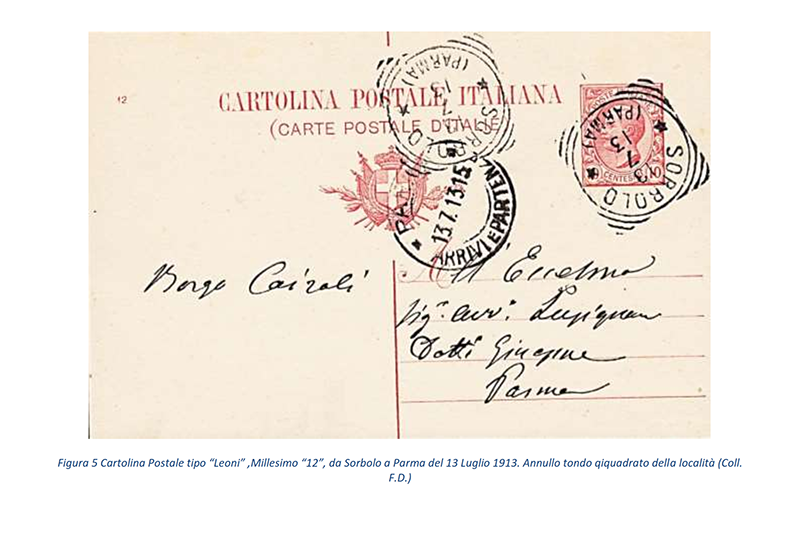 12
CARTOLINA POSTALE ITALIANA
(CARTE POSTALE D'ITALIE)
(PARMA)
13
7
13
SORBOLO
CENTES. 10
(PARMA)
13
7
13
SORBOLO
13.7.13 15
ARRIVI E PARTENZ
Borgo Cairoli
All Eccelmo
Sig.r avv.
Dott Giuseppe
Parma
Figura 5 Cartolina Postale tipo “Leoni” ,Millesimo “12”, da Sorbolo a Parma del 13 Luglio 1913. Annullo tondo qiquadrato della località (Coll.
F.D.)